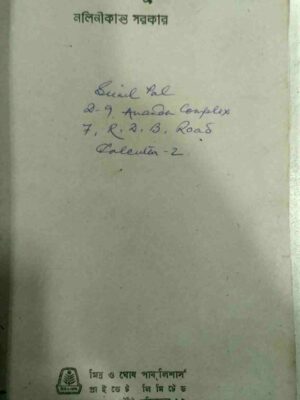 নলিনীকান্ত সরকার
Sunil Pal
D-9 Ananda Complex
7, R. D. B. Road
Calcutta-2
মিত্র ও ঘোষ পাবলিশার্স
প্রাইভেট লিমিটেড